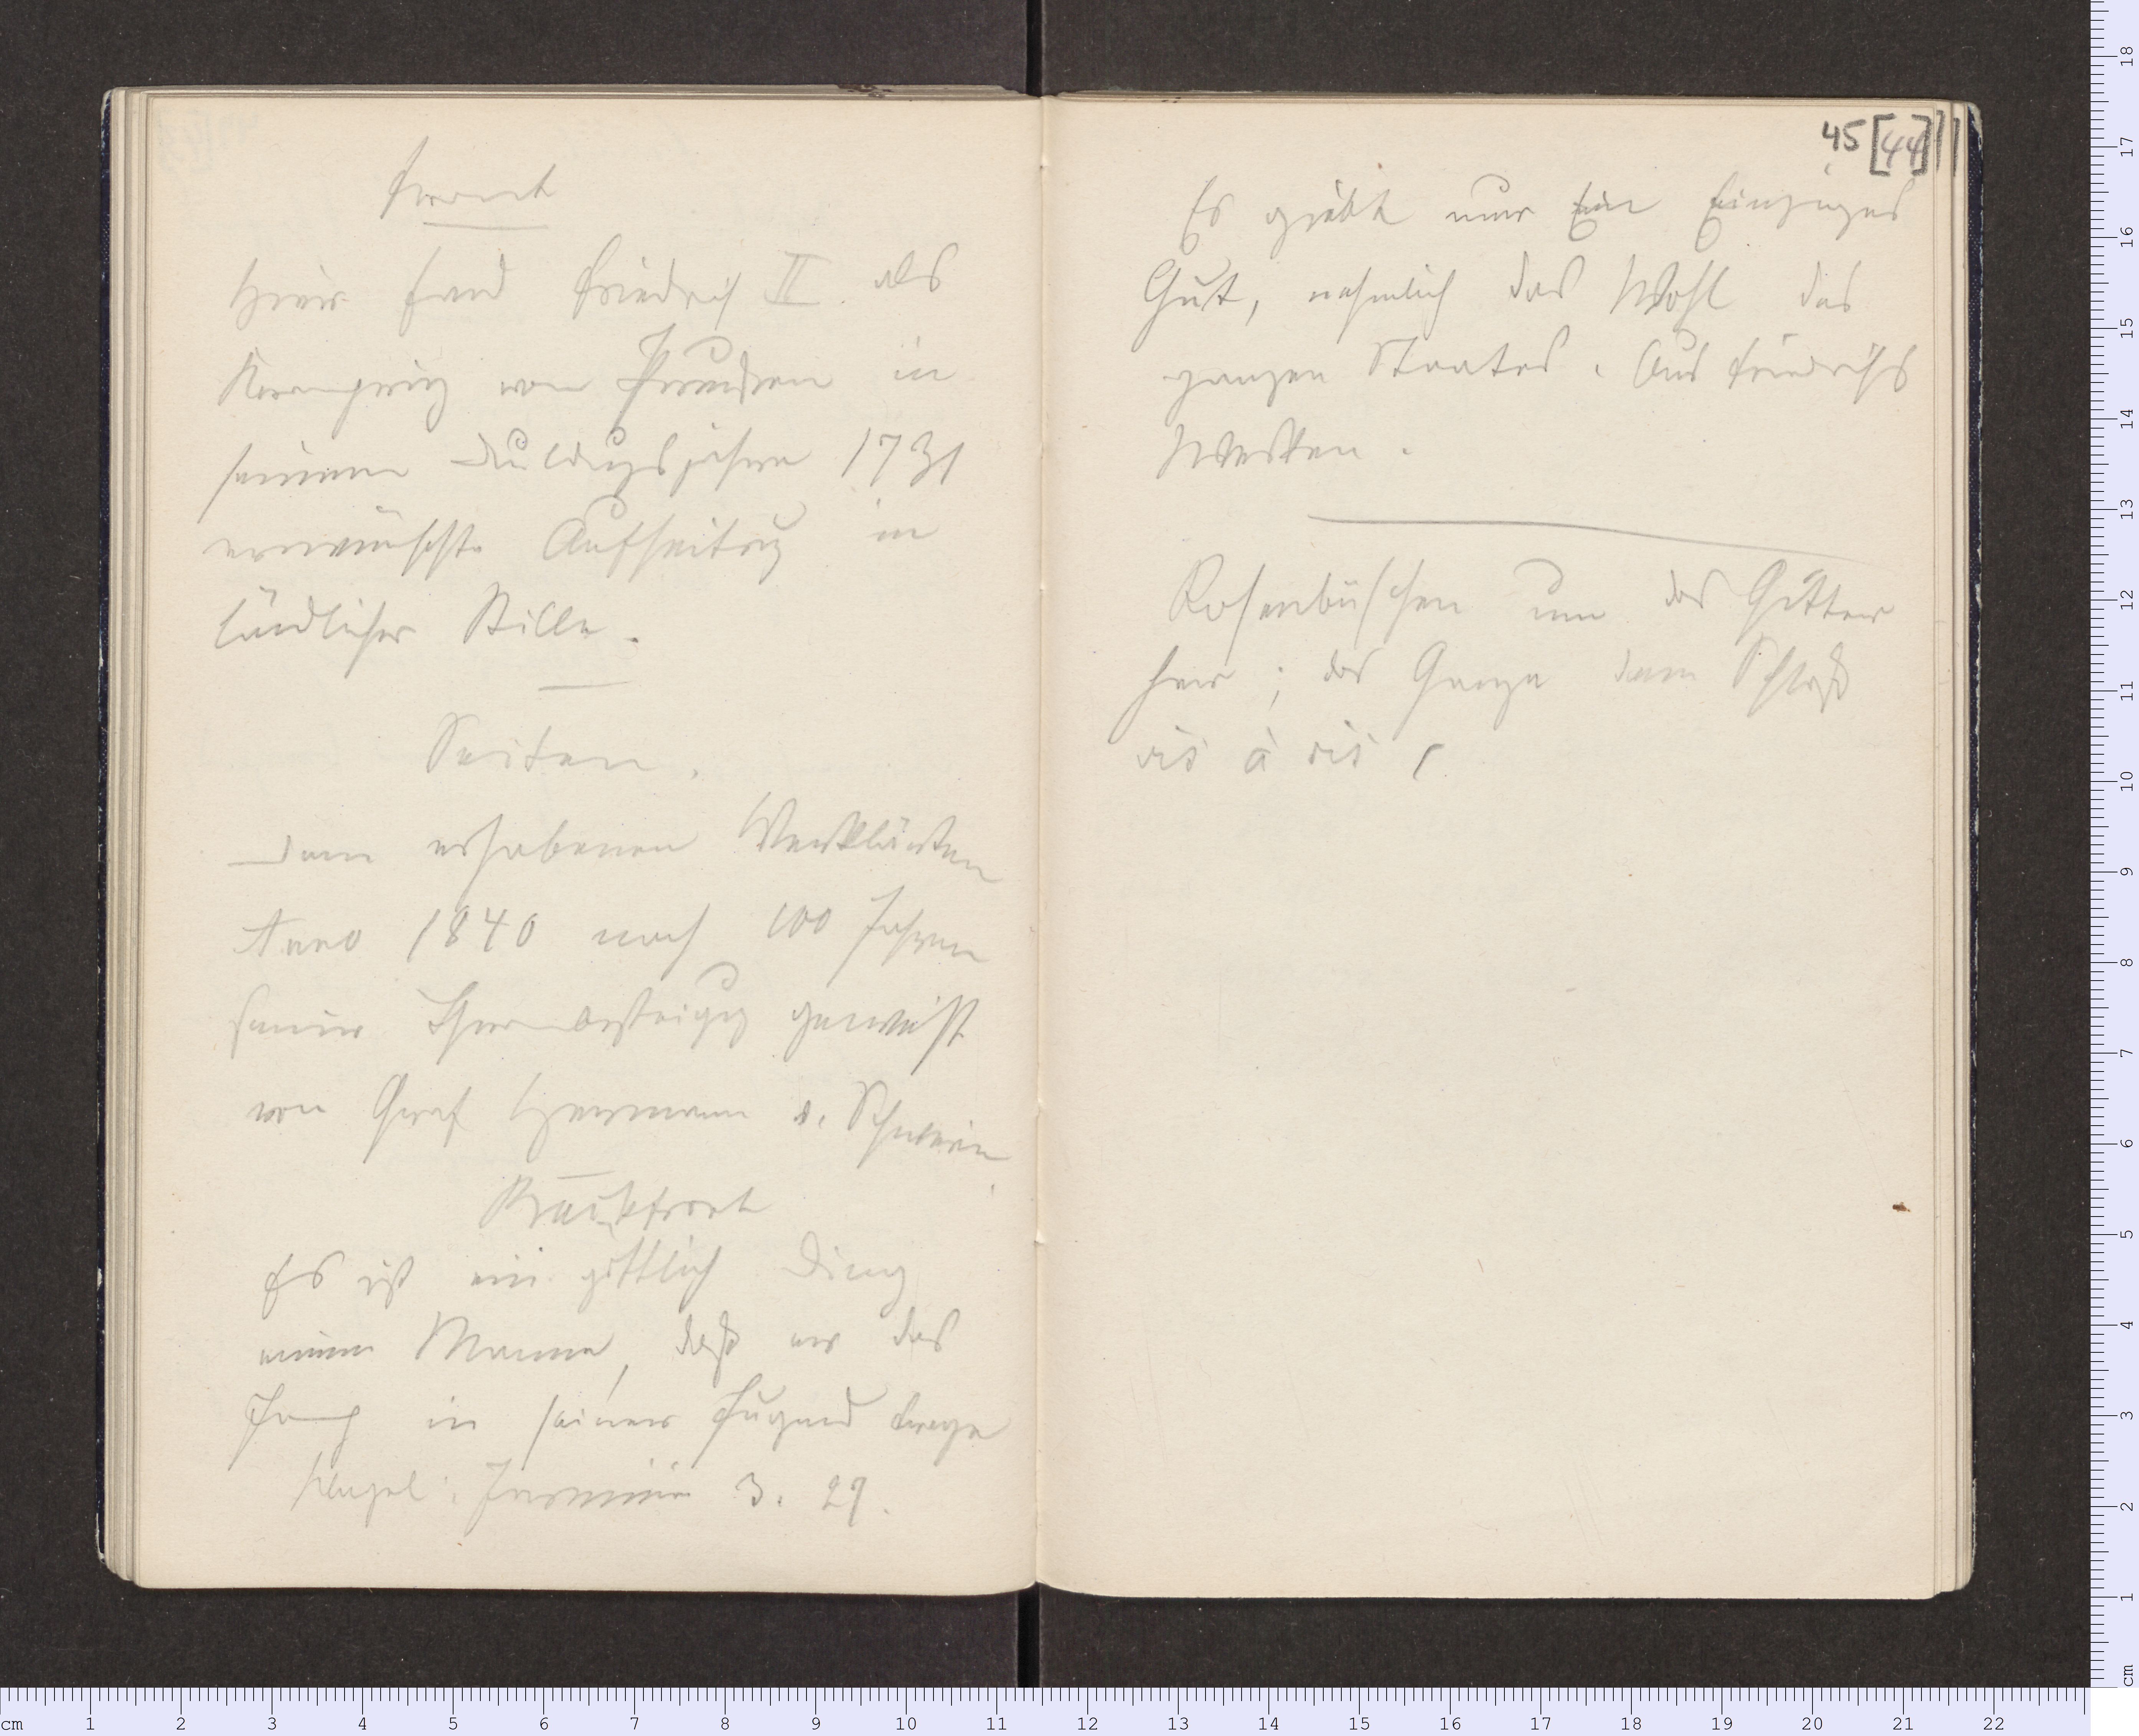 Front
Hier fand Friedrich II. als
Kronprinz von Preußen in
seinem Duldungsjahre 1731
erwünschte Aufheitrung in
ländlicher Stille.
Seiten.
Dem erhabenen Verklärten
Anno 1840 nach 100 Jahren
seiner Thronbesteigung geweiht
von Graf Hermann v. Schwerin
Rückfront
Es ist ein göttlich Ding
einem Manne, daß er das
Joch in seiner Jugend trage
Klagel: Jeremiä 3. 27.
45 [44]
Es giebt nur Ein Einziges
Gut, nehmlich das Wohl des
ganzen Staates. Aus Friedrichs
Werken.
Rosenbüschen um das Gitter
her; das Ganze dem Schloß
vis à vis